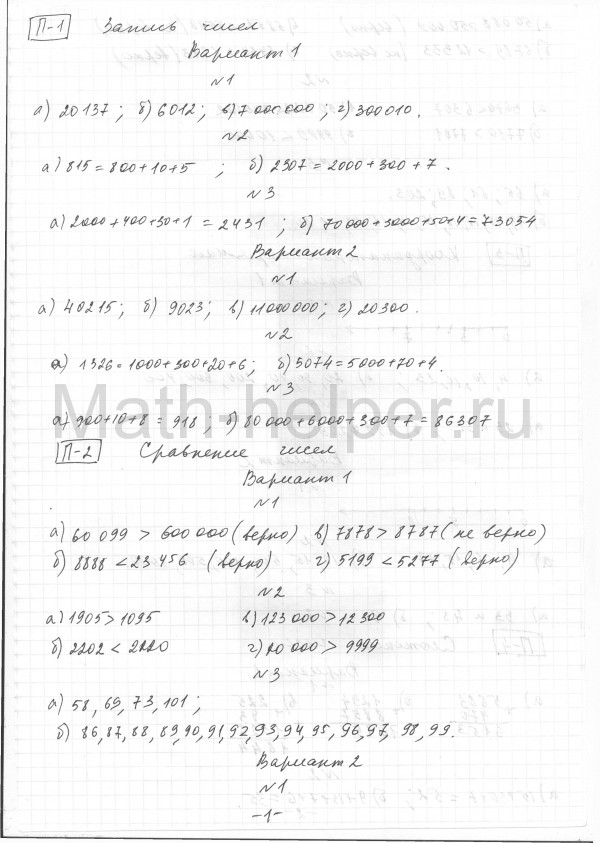 П-1 Запись чисел
Вариант 1
№1
а) 20137; б) 6012; в) 7 000 000; г) 300 010.
№2
а) 815 = 800+10+5 ; б) 2307 = 2000+300+7.
№3
а) 2000+400+30+1 = 2431 ; б) 70000+3000+50+4=73054
Вариант 2
№1
а) 40215; б) 9023; в) 11000000; г) 20300.
№2
а) 1326=1000+300+20+6; б) 5074=5000+70+4.
№3
а) 900+10+8 = 918 ; б) 80 000+6000+300+7 = 86307
Math-helper.ru
П-2 Сравнение чисел
Вариант 1
№1
а) 60 099 > 600 000 (верно) в) 7878 > 8787 (не верно)
б) 8888 < 23 456 (верно) г) 5199 < 5277 (верно)
№2
а) 1905 > 1095 в) 123 000 > 12 300
б) 2202 < 2220 г) 10 000 > 9999
№3
а) 58, 69, 73, 101;
б) 86, 87, 88, 89, 90, 91, 92, 93, 94, 95, 96, 97, 98, 99.
Вариант 2
№1
-1-